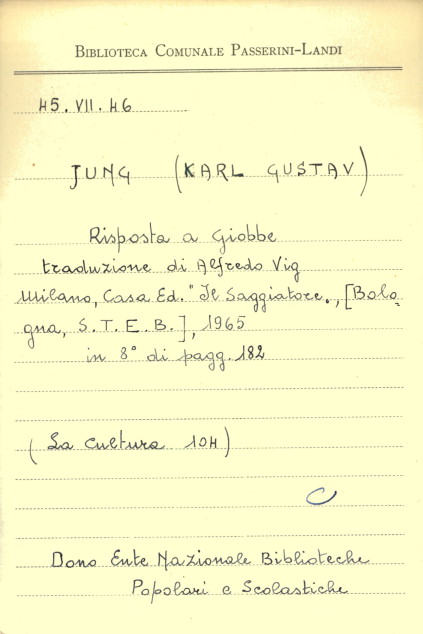 BIBLIOTECA COMUNALE PASSERINI-LANDI
45.VII.46
JUNG (KARL GUSTAV)
Risposta a Giobbe
traduzione di Alfredo Vig
Milano, Casa Ed. "Il Saggiatore., [Bolo-
gna, S.T.E.B.], 1965
in 8° di pagg. 182
(La cultura 104)
C
Dono Ente Nazionale Biblioteche
Popolari e Scolastiche